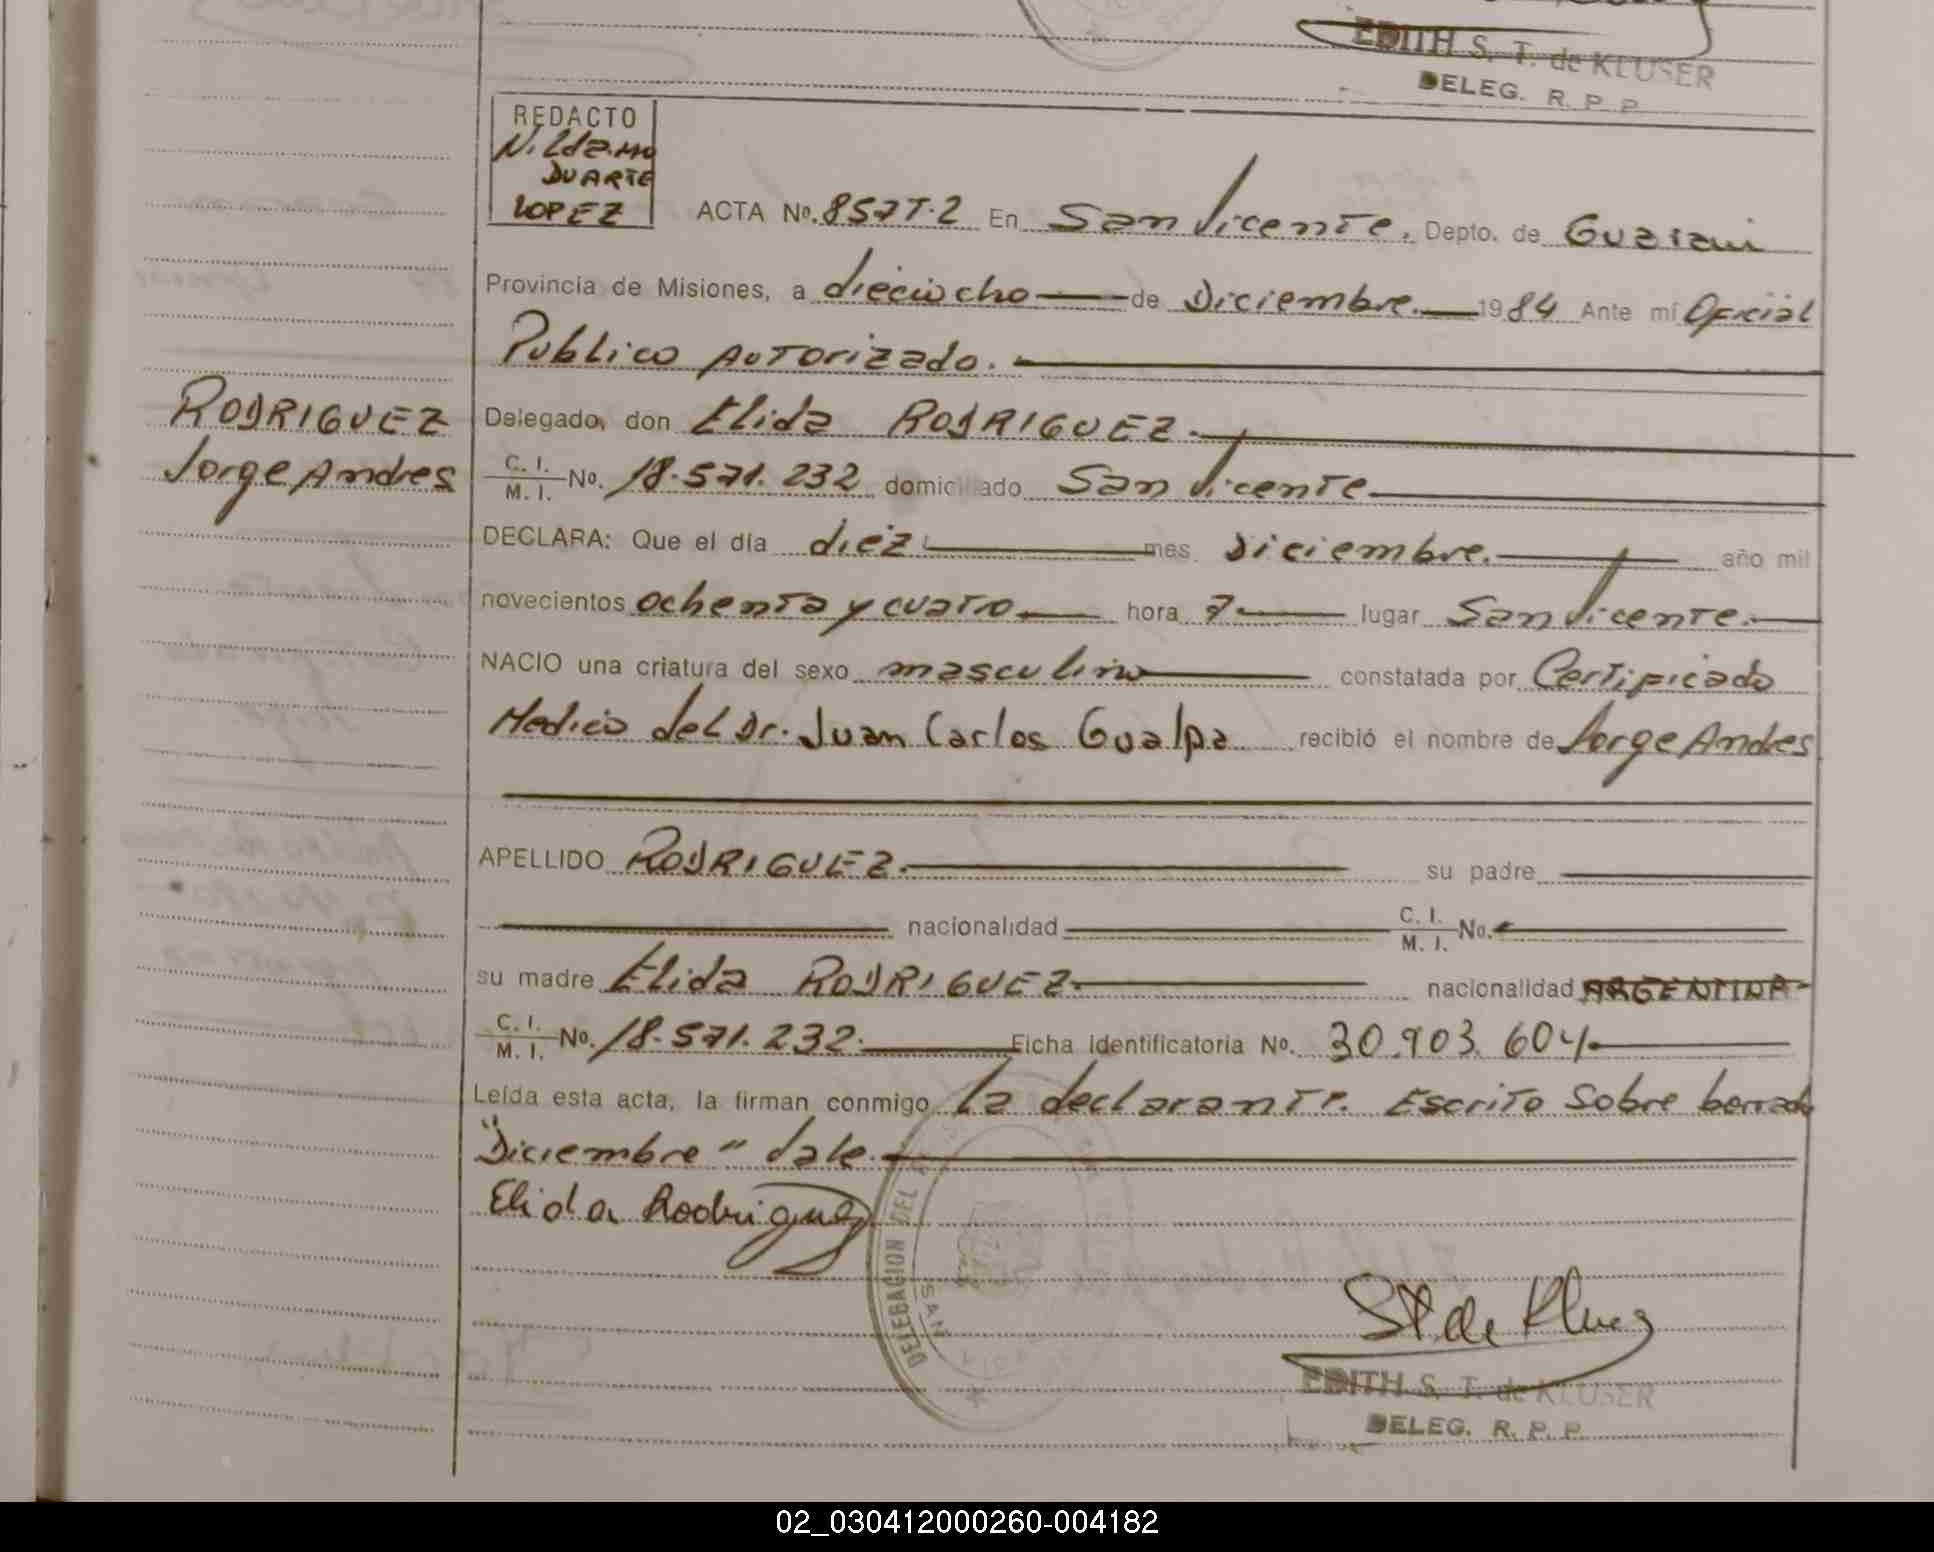 EDITH S. T. de KLUSER
DELEG. R. P. P.
REDACTO
DUARTE
LOPEZ
ACTA No. 857T.2 En San Vicente. Depto. de Guarani
Provincia de Misiones, a dieciocho de Diciembre. 1984 Ante mí Oficial
Publico Autorizado.
RODRIGUEZ
Jorge Andres
Delegado, don Elida RODRIGUEZ.
C. I. / M. I. No. 18.571.232 domiciliado San Vicente
DECLARA: Que el día diez mes Diciembre. año mil
novecientos ochenta y cuatro hora 7 lugar San Vicente.
NACIO una criatura del sexo masculino constatada por Certificado
Medico del Dr. Juan Carlos Gualpa recibió el nombre de Jorge Andres
APELLIDO RODRIGUEZ. su padre
nacionalidad C. I. / M. I. No.
su madre Elida RODRIGUEZ nacionalidad ARGENTINA
C. I. / M. I. No. 18.571.232. Ficha Identificatoria No. 30.903.604
Leída esta acta, la firman conmigo La declarante. Escrito sobre borrado
"Diciembre" Vale.
Elida Rodriguez
DELEGACION DEL
SAN
St de Kluser
EDITH S. T. de KLUSER
DELEG. R. P. P.
02_030412000260-004182